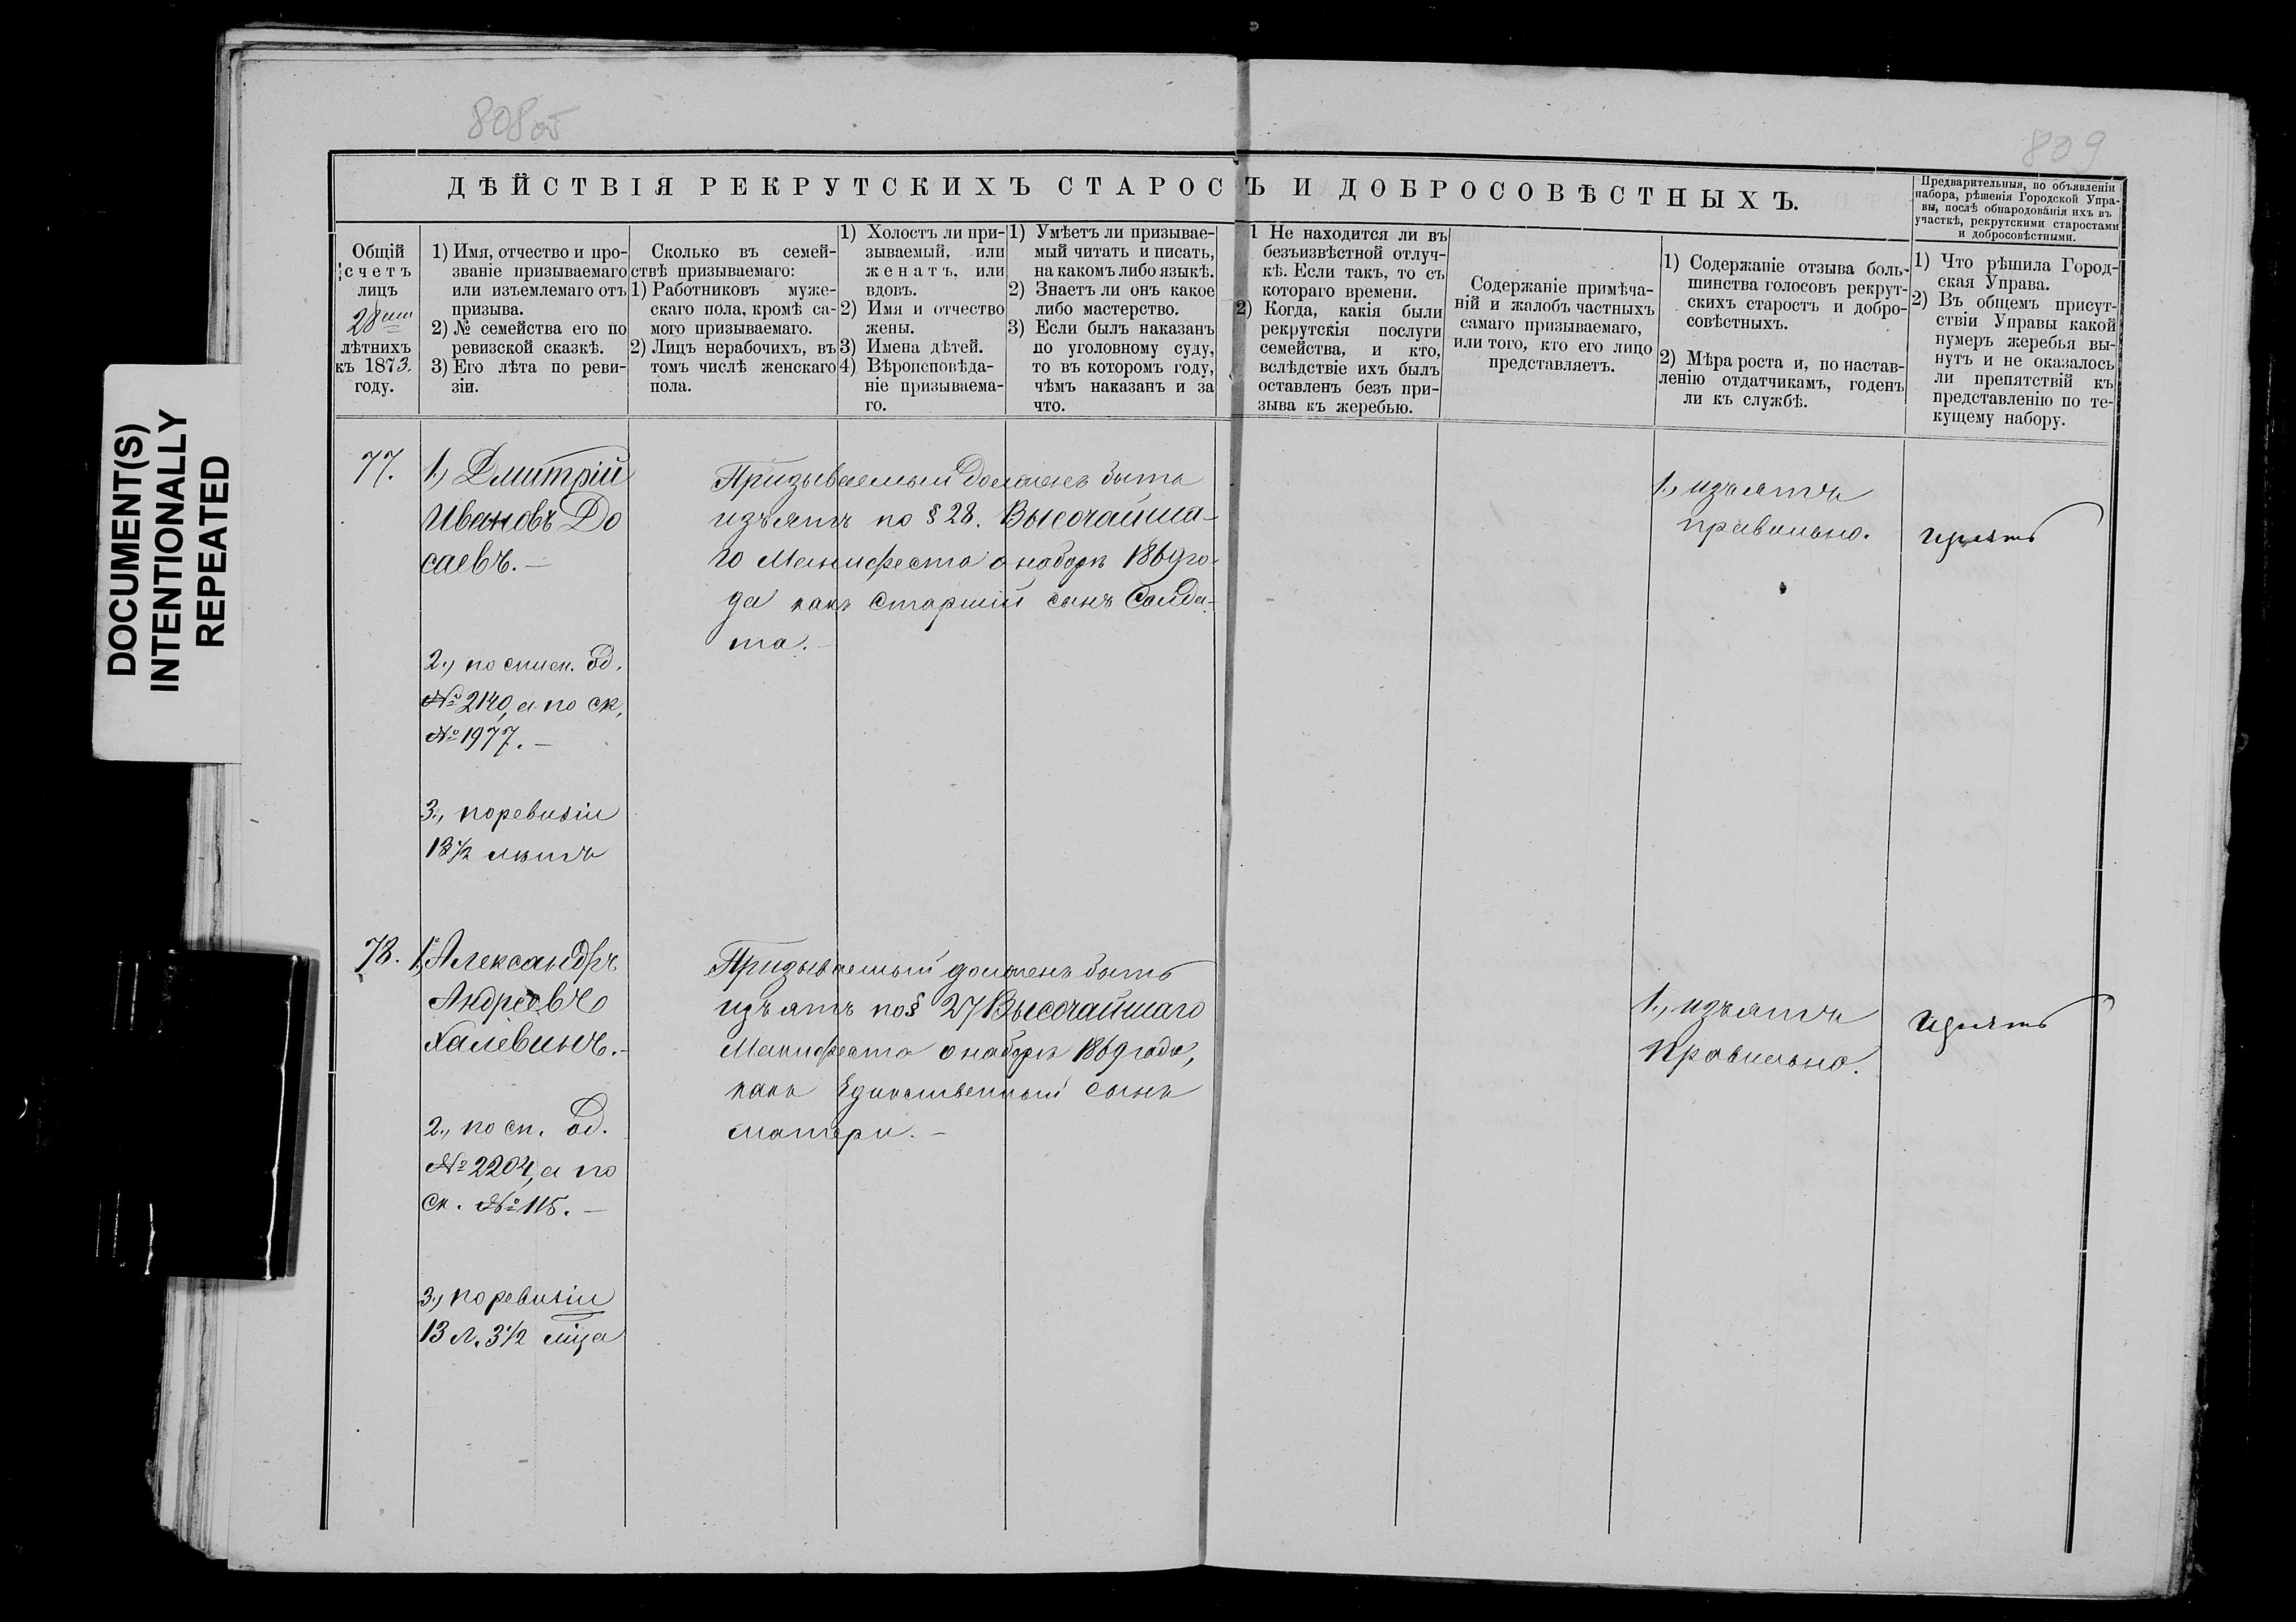 808об
809
DOCUMENT(S)
INTENTIONALLY
REPEATED
ДѢЙСТВІЯ РЕКРУТСКИХЪ СТАРОСТЪ И ДОБРОСОВѢСТНЫХЪ.
Предварительныя, по объявленіи
набора, рѣшенія Городской Упра-
вы, послѣ обнародованія ихъ въ
участкѣ, рекрутскими старостами
и добросовѣстными.
Общій
счетъ
лицъ
28ми
лѣтнихъ
къ 1873.
году.
1) Имя, отчество и про-
званіе призываемаго
или изъемлемаго отъ
призыва.
2) № семейства его по
ревизской сказкѣ.
3) Его лѣта по реви-
зіи.
Сколько въ семей-
ствѣ призываемаго:
1) Работниковъ муже-
скаго пола, кромѣ са-
мого призываемаго.
2) Лицъ нерабочихъ, въ
томъ числѣ женскаго
пола.
1) Холостъ ли при-
зываемый, или
женатъ, или
вдовъ.
2) Имя и отчество
жены.
3) Имена дѣтей.
4) Вѣроисповѣда-
ніе призываема-
го.
1) Умѣетъ ли призывае-
мый читать и писать,
на какомъ либо языкѣ.
2) Знаетъ ли онъ какое
либо мастерство.
3) Если былъ наказанъ
по уголовному суду,
то въ которомъ году,
чѣмъ наказанъ и за
что.
1 Не находится ли въ
безъизвѣстной отлуч-
кѣ. Если такъ, то съ
котораго времени.
2) Когда, какія были
рекрутскія послуги
семейства, и кто,
вслѣдствіе ихъ былъ
оставленъ безъ при-
зыва къ жеребью.
Содержаніе примѣча-
ній и жалобъ частныхъ
самаго призываемаго,
или того, кто его лицо
представляетъ.
1) Содержаніе отзыва боль-
шинства голосовъ рекрут-
скихъ старостъ и добро-
совѣстныхъ.
2) Мѣра роста и, по настав-
ленію отдатчикамъ, годенъ
ли къ службѣ.
1) Что рѣшила Город-
ская Управа.
2) Въ общемъ присут-
ствіи Управы какой
нумеръ жеребья вы-
нутъ и не оказалось
ли препятствій къ
представленію по те-
кущему набору.
77.
1., Дмитрій
Ивановъ До
саевъ.—
2., по списк. од.
№ 2140, а по ск,
№ 1977.—
3., по ревизіи
13 1/2 лѣтъ
Призываемый долженъ быть
изъятъ по § 28. Высочайша-
го Манифеста о наборѣ 1869 го-
да какъ Старшій сынъ Солда-
та.—
1., изъятъ
правильно.
изъять
78.
1., Александръ
Андреевъ
Халевинъ.—
2., по сп. од.
№ 2204, а по
ск. № 115.—
3., по ревизіи
13 л. 3 1/2 мѣца
Призываемый долженъ быть
изъятъ по § 27 Высочайшаго
Манифеста о наборѣ 1869 года,
какъ Единственный сынъ
матери.—
1., изъятъ
правильно.
изъять